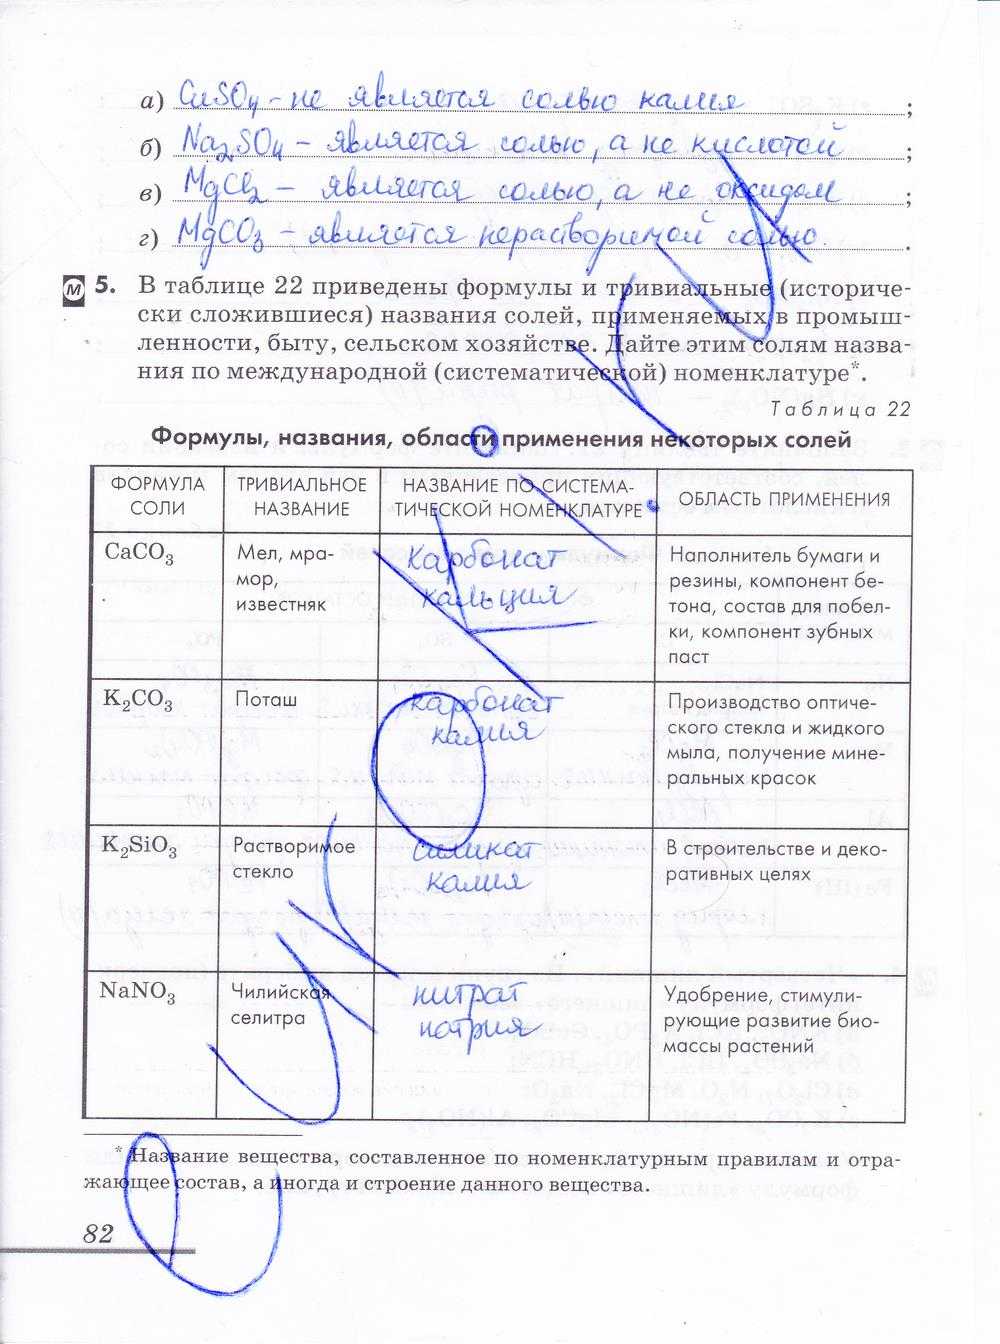 а) CuSO₄ - не является солью калия ;
б) Na₂SO₄ - является солью, а не кислотой ;
в) MgCl₂ - является солью, а не оксидом ;
г) MgCO₃ - является нерастворимой солью. .
М 5. В таблице 22 приведены формулы и тривиальные (историче-
ски сложившиеся) названия солей, применяемых в промыш-
ленности, быту, сельском хозяйстве. Дайте этим солям назва-
ния по международной (систематической) номенклатуре*.
Таблица 22
Формулы, названия, области применения некоторых солей
ФОРМУЛА СОЛИ
ТРИВИАЛЬНОЕ НАЗВАНИЕ
НАЗВАНИЕ ПО СИСТЕМА-
ТИЧЕСКОЙ НОМЕНКЛАТУРЕ
ОБЛАСТЬ ПРИМЕНЕНИЯ
CaCO₃
Мел, мра-
мор,
известняк
карбонат
кальция
Наполнитель бумаги и
резины, компонент бе-
тона, состав для побел-
ки, компонент зубных
паст
K₂CO₃
Поташ
карбонат
калия
Производство оптиче-
ского стекла и жидкого
мыла, получение мине-
ральных красок
K₂SiO₃
Растворимое
стекло
силикат
калия
В строительстве и деко-
ративных целях
NaNO₃
Чилийская
селитра
нитрат
натрия
Удобрение, стимули-
рующие развитие био-
массы растений
* Название вещества, составленное по номенклатурным правилам и отра-
жающее состав, а иногда и строение данного вещества.
82